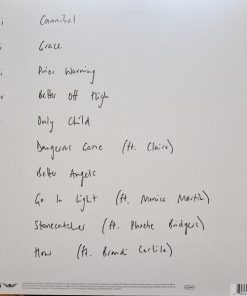 Cannibal
Grace
Prior Warning
Better Off High
Only Child
Dangerous Game (ft. Clairo)
Better Angels
Go In Light (ft. Monica Martin)
Stonecatcher (ft. Phoebe Bridgers)
How (ft. Brandi Carlile)